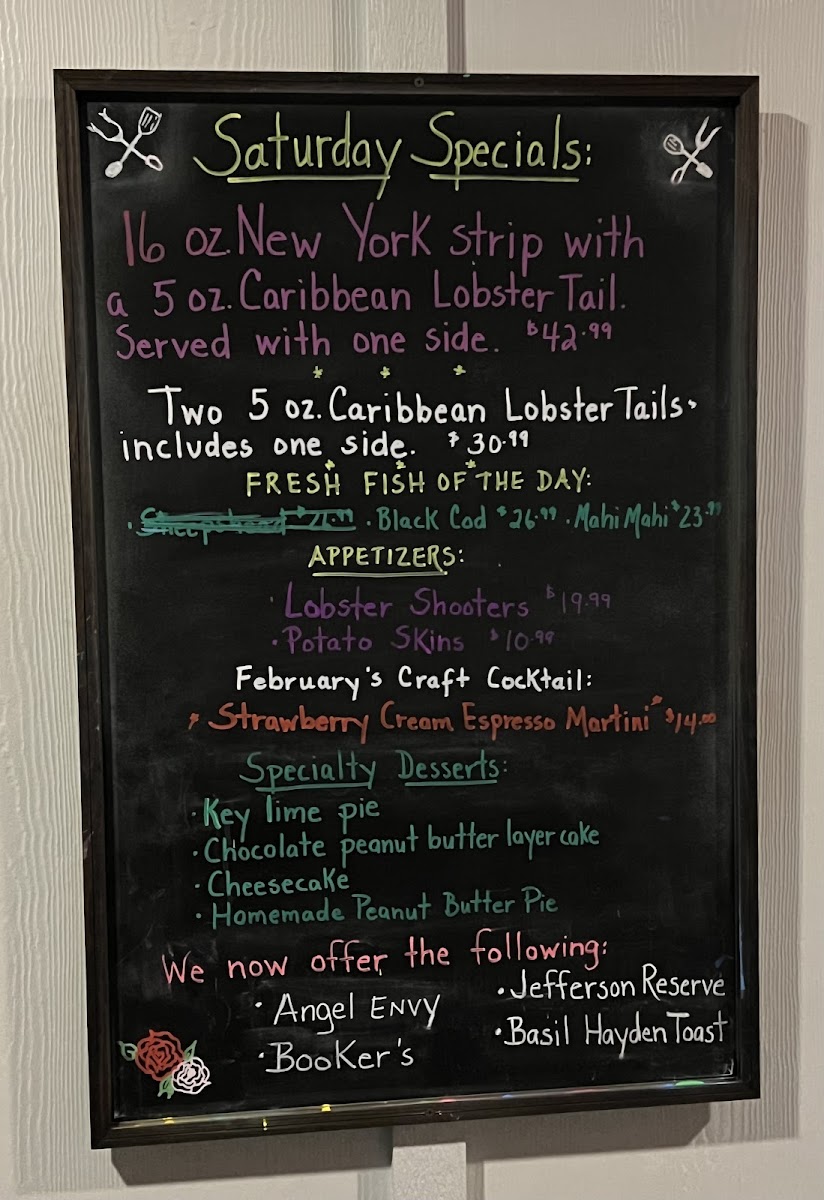 Saturday Specials:
16 oz New York strip with
a 5 oz. Caribbean Lobster Tail.
Served with one side. $42.99
Two 5 oz. Caribbean Lobster Tails.
includes one side. $30.99
FRESH FISH OF THE DAY:
· Sheepshead $21.99 · Black Cod $26.99 · Mahi Mahi $23.99
APPETIZERS:
· Lobster Shooters $19.99
· Potato Skins $10.99
February's Craft Cocktail:
* Strawberry Cream Espresso Martini * $14.00
Specialty Desserts:
· Key lime pie
· Chocolate peanut butter layer cake
· Cheesecake
· Homemade Peanut Butter Pie
We now offer the following:
· Angel ENVY
· Jefferson Reserve
· Booker's
· Basil Hayden Toast